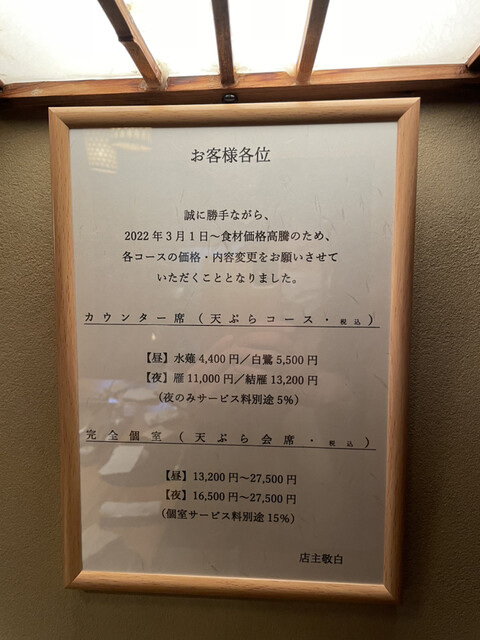 お客様各位
誠に勝手ながら、
2022年3月1日~食材価格高騰のため、
各コースの価格・内容変更をお願いさせて
いただくこととなりました。
カウンター席(天ぷらコース・税込)
【昼】水薙4,400円/白鷺5,500円
【夜】雁11,000円/結雁13,200円
(夜のみサービス料別途5%)
完全個室(天ぷら会席・税込)
【昼】13,200円~27,500円
【夜】16,500円~27,500円
(個室サービス料別途15%)
店主敬白